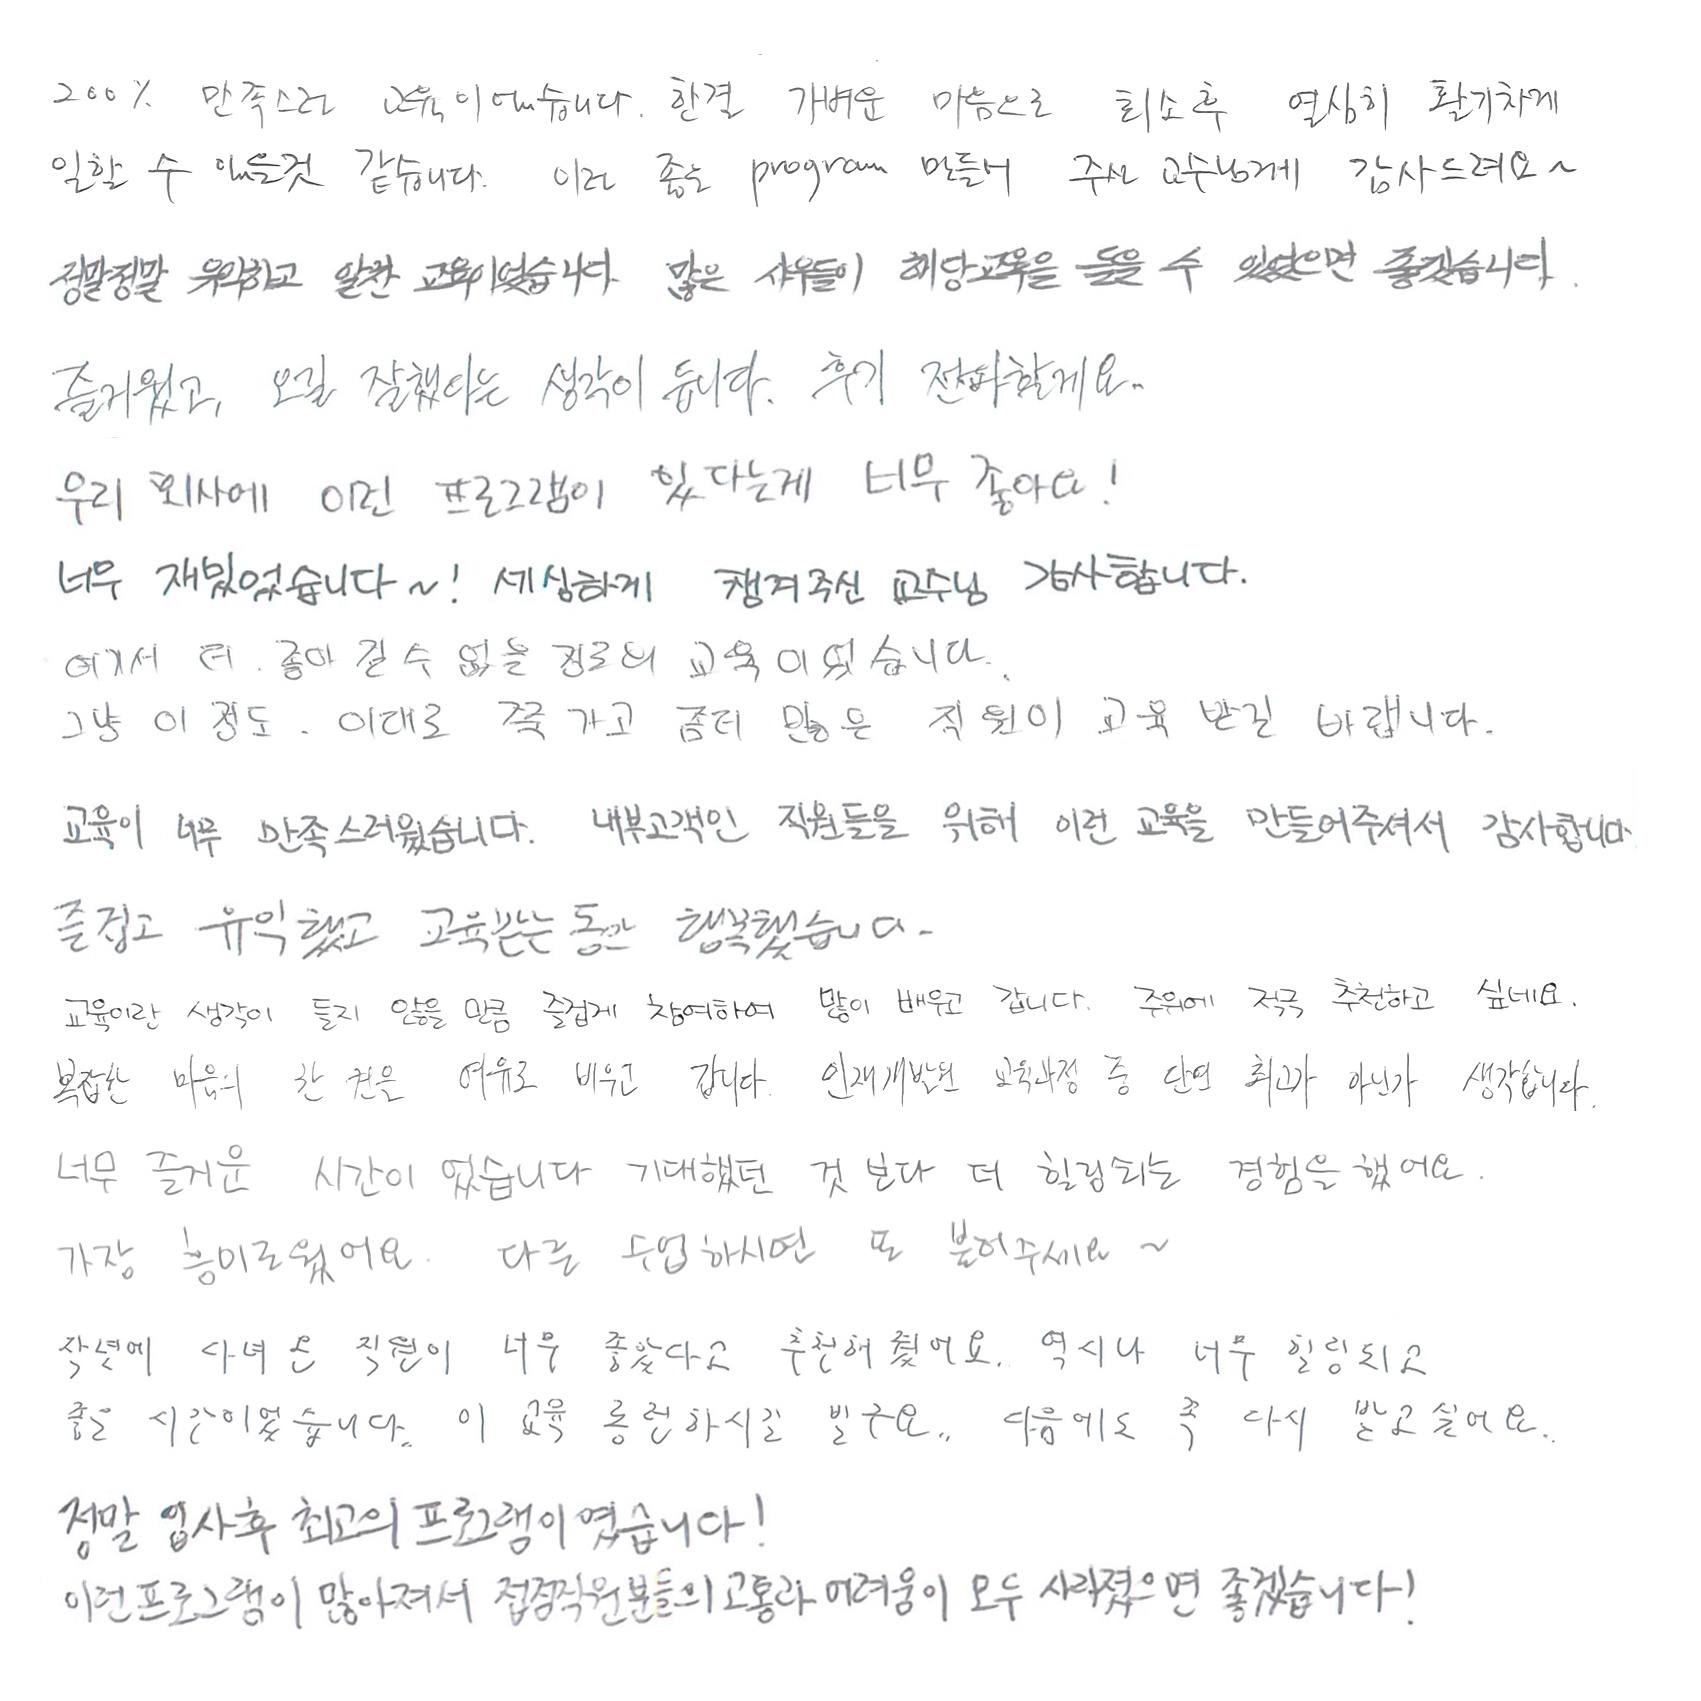 200% 만족스런 교육이었습니다. 한결 가벼운 마음으로 퇴소후 열심히 활기차게
일할 수 있을것 같습니다. 이런 좋은 program 만들어 주신 교수님께 감사드려요~
정말정말 유익하고 알찬 교육이었습니다. 많은 사우들이 해당교육을 들을 수 있었으면 좋겠습니다.
즐거웠고, 오길 잘했다는 생각이 듭니다. 후기 전파할게요..
우리 회사에 이런 프로그램이 있다는게 너무 좋아요!
너무 재밌었습니다~! 세심하게 챙겨주신 교수님 감사합니다.
여기서 더. 좋아 질 수 없을 정도의 교육이었습니다.
그냥 이정도. 이대로 쭉 가고 좀더 많은 직원이 교육 받길 바랍니다.
교육이 너무 만족스러웠습니다. 내부고객인 직원들을 위해 이런 교육을 만들어주셔서 감사합니다
즐겁고 유익했고 교육받는동안 행복했습니다.
교육이란 생각이 들지 않을 만큼 즐겁게 참여하여 많이 배우고 갑니다. 주위에 적극 추천하고 싶네요.
복잡한 마음의 한 켠을 여유로 비우고 갑니다. 인재개발원 교육과정 중 단연 최고가 아닌가 생각합니다.
너무 즐거운 시간이었습니다 기대했던 것 보다 더 힐링되는 경험을 했어요.
가장 흥미로웠어요. 다른 수업하시면 또 불러주세요~
작년에 다녀온 직원이 너무 좋았다고 추천해줬어요. 역시나 너무 힐링되고
좋은 시간이었습니다. 이 교육 롱런하시길 빌구요.. 다음에도 꼭 다시 받고싶어요..
정말 입사후 최고의 프로그램이였습니다!
이런프로그램이 많아져서 접점직원분들의 고통과 어려움이 모두 사라졌으면 좋겠습니다!